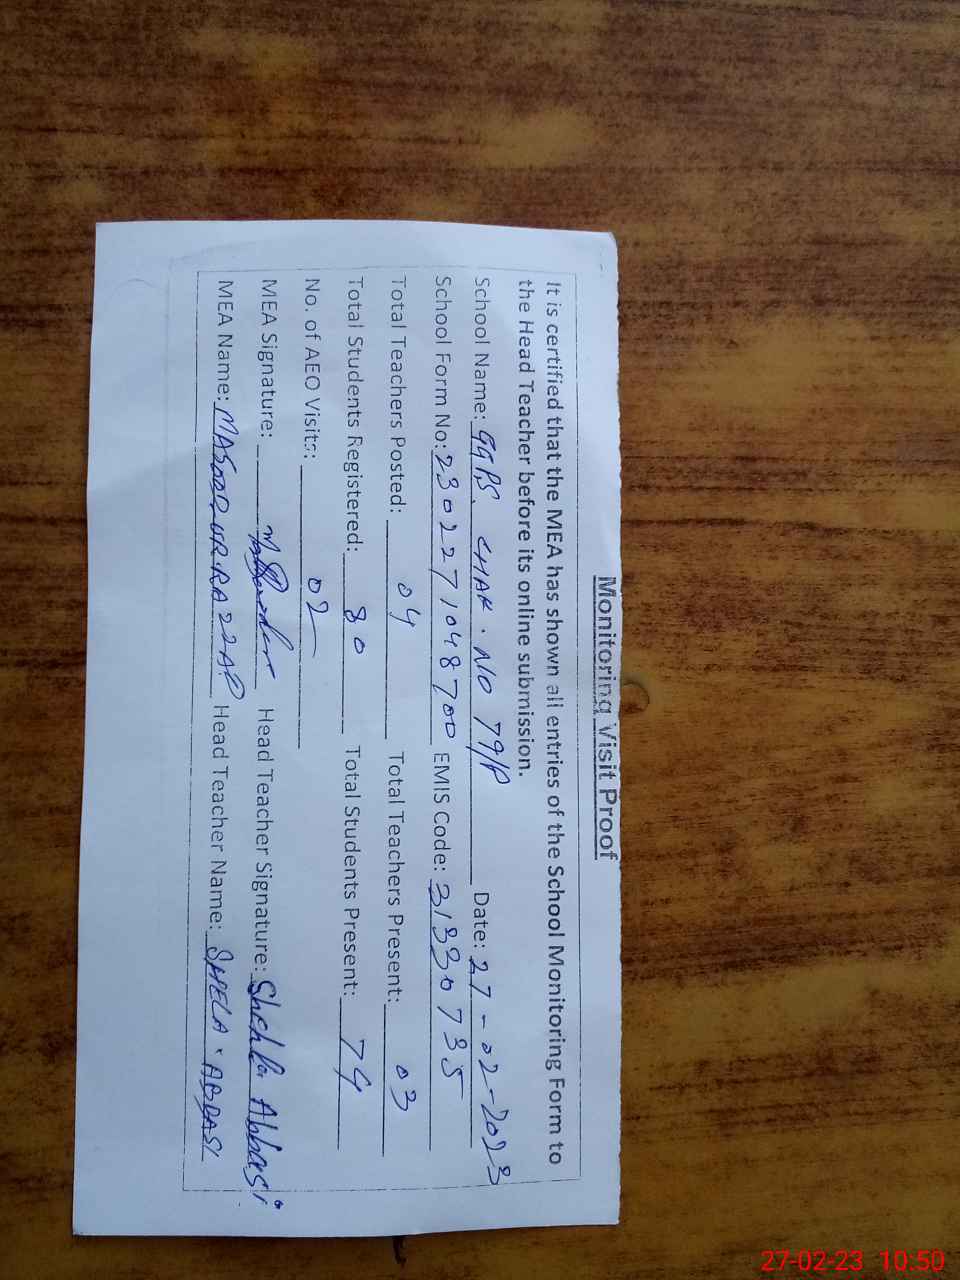 Monitoring Visit Proof
It is certified that the MEA has shown all entries of the School Monitoring Form to
the Head Teacher before its online submission.
School Name: GGPS. CHAK. NO 79/P Date: 27-02-2023
School Form No: 2302271048700 EMIS Code: 31330735
Total Teachers Posted: 04 Total Teachers Present: 03
Total Students Registered: 80 Total Students Present: 74
No. of AEO Visits: 02
MEA Signature: Head Teacher Signature: Shehla Abbasi
MEA Name: MASOOD.UR.RAZZAP Head Teacher Name: SHELA. ABBASI
27-02-23 10:50